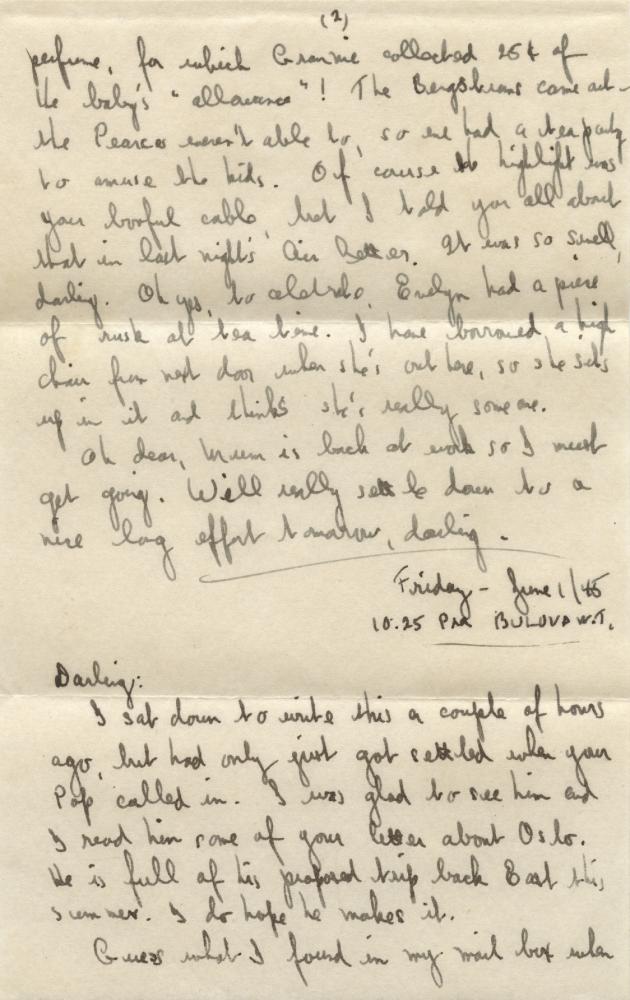 (2)
perfume, for which Grannie collected 25¢ of
the baby's "allowance"! The Bergstroms came out -
the Pearces weren't able to, so we had a tea party
to amuse the kids. Of course the highlight was
your booful cable, but I told you all about
that in last night's Air Letter. It was so swell,
darling. Oh yes, to celebrate, Evelyn had a piece
of rusk at tea time. I have borrowed a high
chair from next door when she's out here, so she sits
up in it and thinks she's really someone.
Oh dear, Mum is back at work so I must
get going. We'll really settle down to a
nice long effort tomorrow, darling.
Friday - June 1/45
10.25 PM BULOVA W.T.
Darling:
I sat down to write this a couple of hours
ago, but had only just got settled when your
Pop called in. I was glad to see him and
I read him some of your letter about Oslo.
He is full of his proposed trip back East this
summer. I do hope he makes it.
Guess what I found in my mail box when